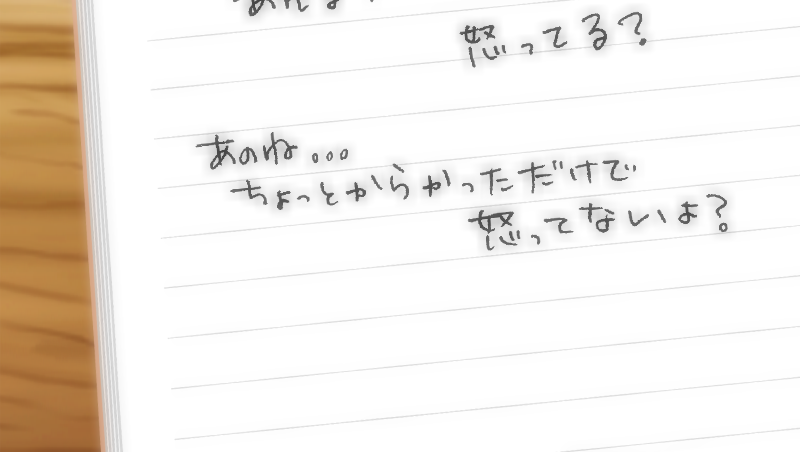 怒ってる？
あのね...
ちょっとからかっただけで
怒ってないよ？